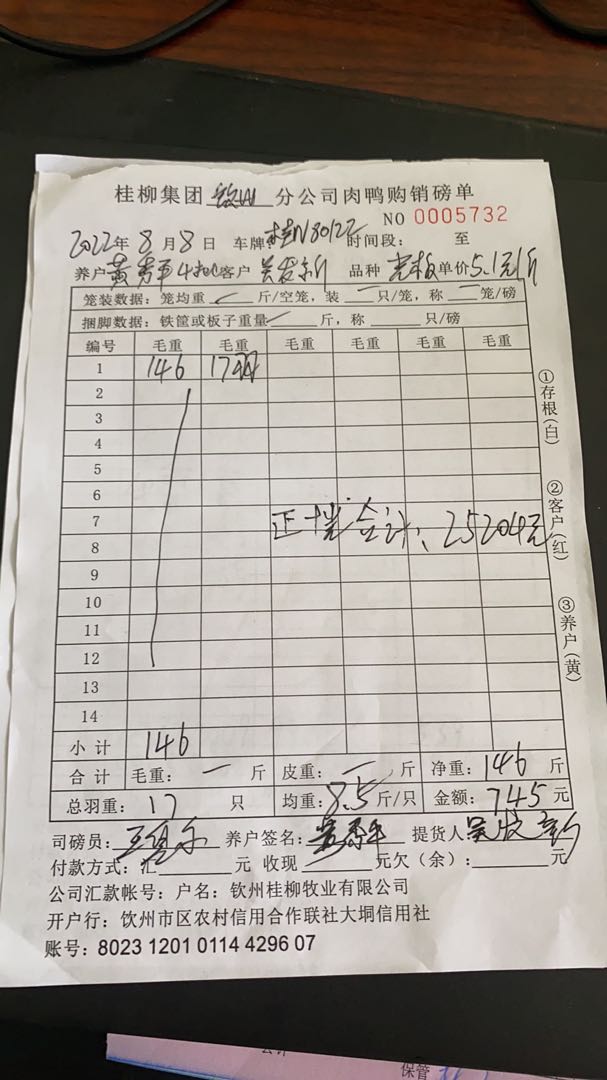 桂柳集团 钦州 分公司肉鸭购销磅单
NO 0005732
2022年 8 月 8 日 车牌: 桂N 时间段: 至
养户 黄 客户 吴 品种 单价 5.1元/斤
笼装数据: 笼均重 斤/空笼, 装 一 只/笼, 称 一 笼/磅
捆脚数据: 铁筐或板子重量 斤, 称 只/磅
编号 毛重 毛重 毛重 毛重 毛重 毛重
1 146 17羽
2
3
4
5
6
7
8
正 合计: 25204元
9
10
11
12
13
14
小计 146
合计 毛重: 一 斤 皮重: 一 斤 净重: 146 斤
总羽重: 17 只 均重: 8.5 斤/只 金额: 745 元
①存根(白)
②客户(红)
③养户(黄)
司磅员: 王 养户签名: 黄 提货人 吴
付款方式: 汇 元 收现 元欠(余): 元
公司汇款帐号: 户名: 钦州桂柳牧业有限公司
开户行: 钦州市区农村信用合作联社大垌信用社
账号: 8023 1201 0114 4296 07
保管